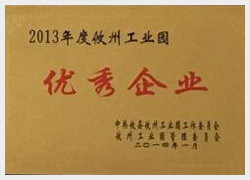 2013年度攸州工业园
优秀企业
中共攸县攸州工业园工作委员会
攸州工业园管理委员会
二〇一四年一月